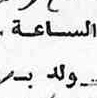 الساعة .
ولد بـ